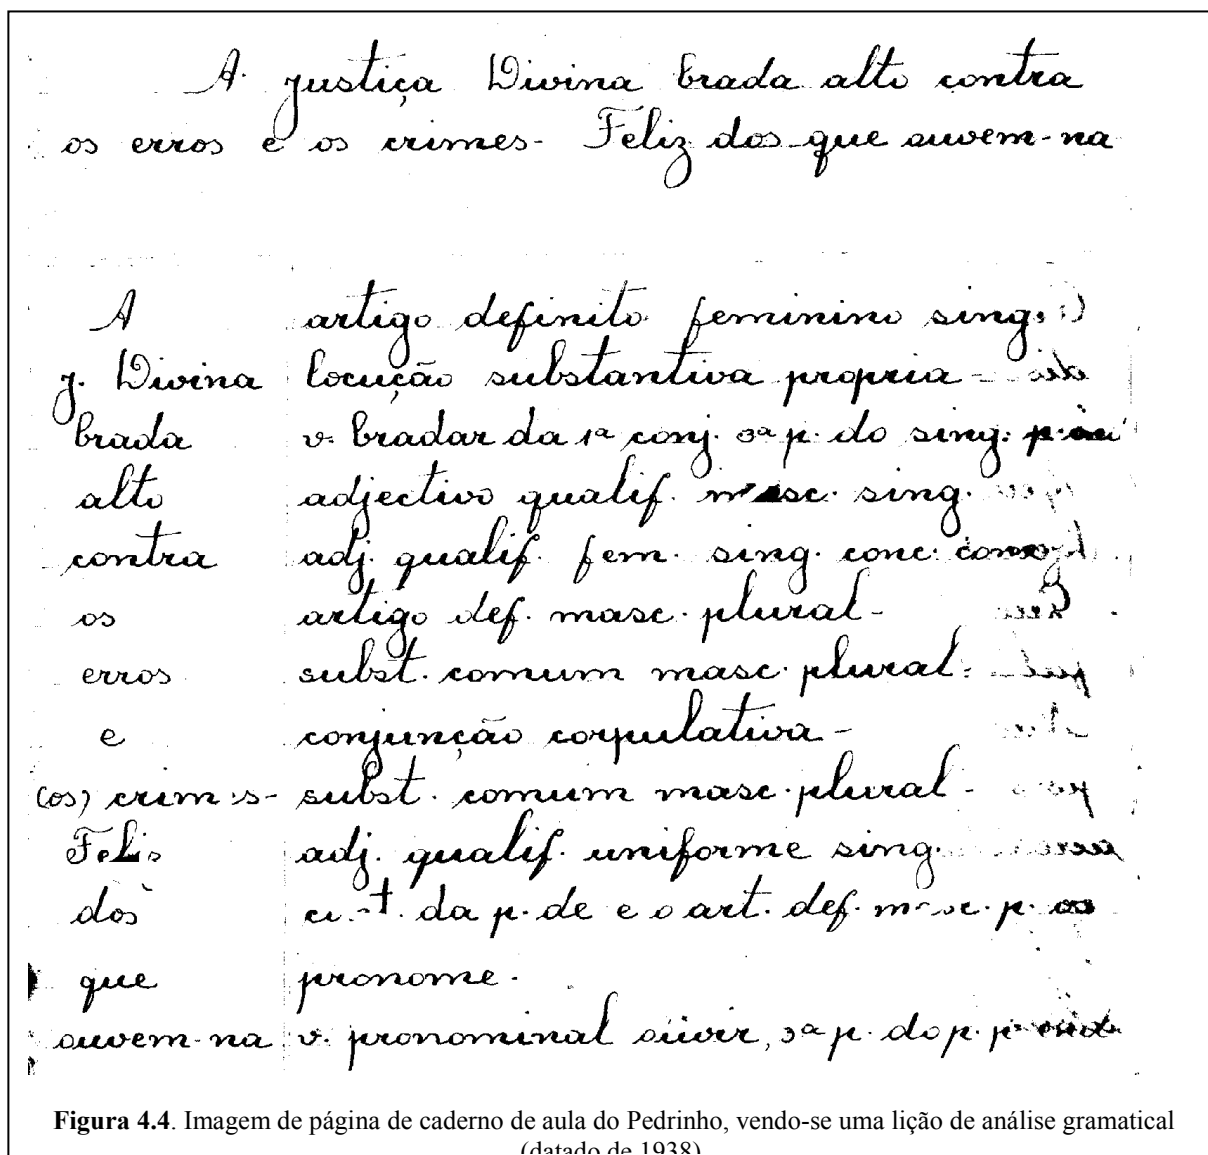 A Justiça Divina brada alto contra
os erros e os crimes- Feliz dos que ouvem-na
A artigo definito feminino sing.
J. Divina locução substantiva propria -
brada v. bradar da 1ª conj. 3ª p. do sing.
alto adjectivo qualif. masc. sing.
contra adj. qualif. fem. sing. conc.
os artigo def. masc. plural-
erros subst. comum masc. plural.
e conjuncção corpulativa-
(os) crimes- subst. comum masc. plural-
Felis adj. qualif. uniforme sing.
dos da p. de e o art. def. masc. p. os
que pronome.
ouvem-na v. pronominal ouvir, 3ª p. do p.
Figura 4.4. Imagem de página de caderno de aula do Pedrinho, vendo-se uma lição de análise gramatical
(datado de 1938)